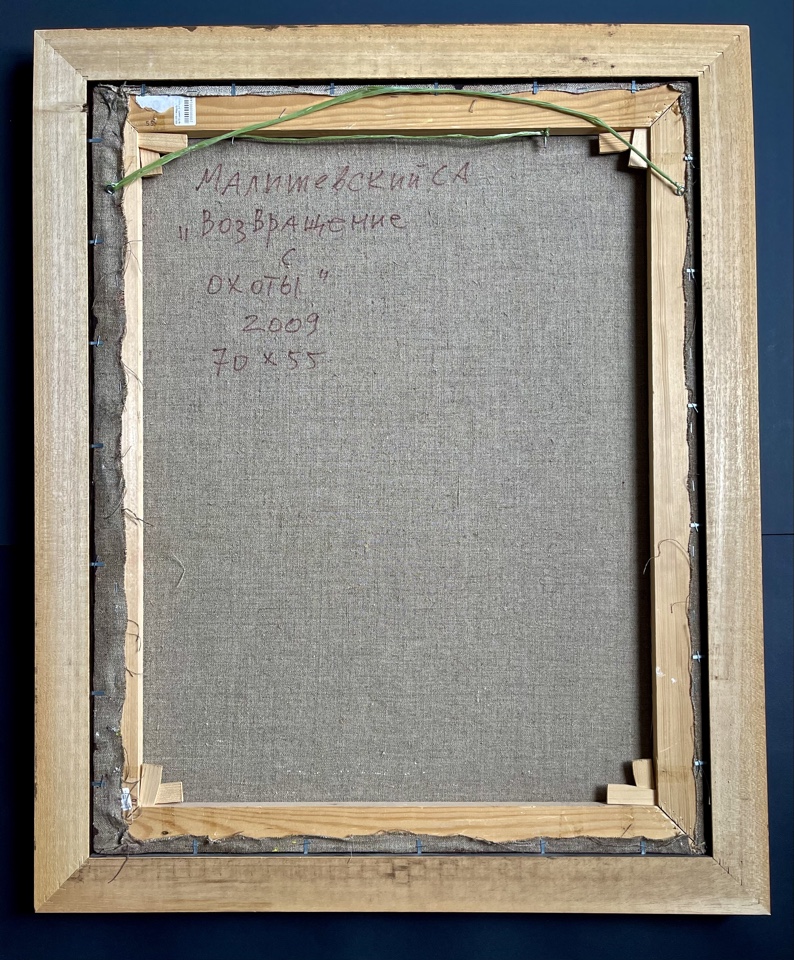 Малишевский СА
„Возвращение
с
охоты"
2009
70 x 55